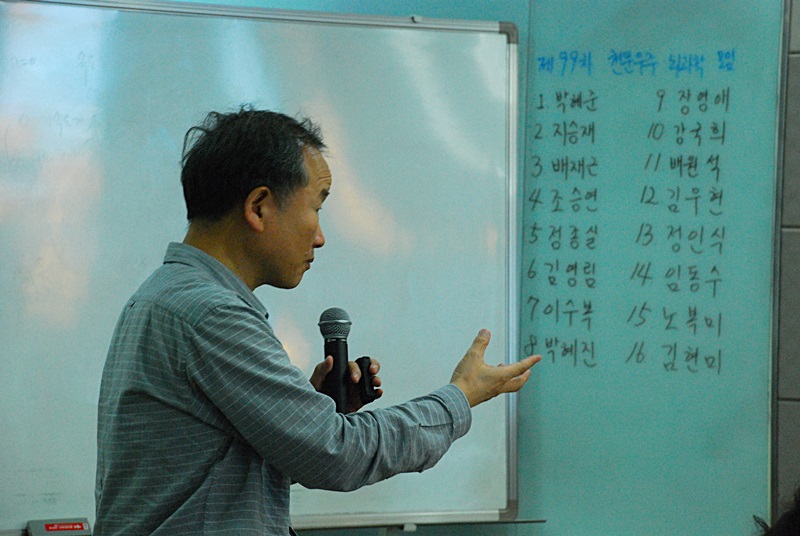 제 99차 천문우주 뇌과학 모임
1. 박혜준
2 지승재
3 배재근
4 조승연
5 정종실
6 김영림
7 이수복
8 박혜진
9 장영애
10 강국희
11 배원석
12 김우현
13 정인식
14 임동수
15 노복미
16 김현미